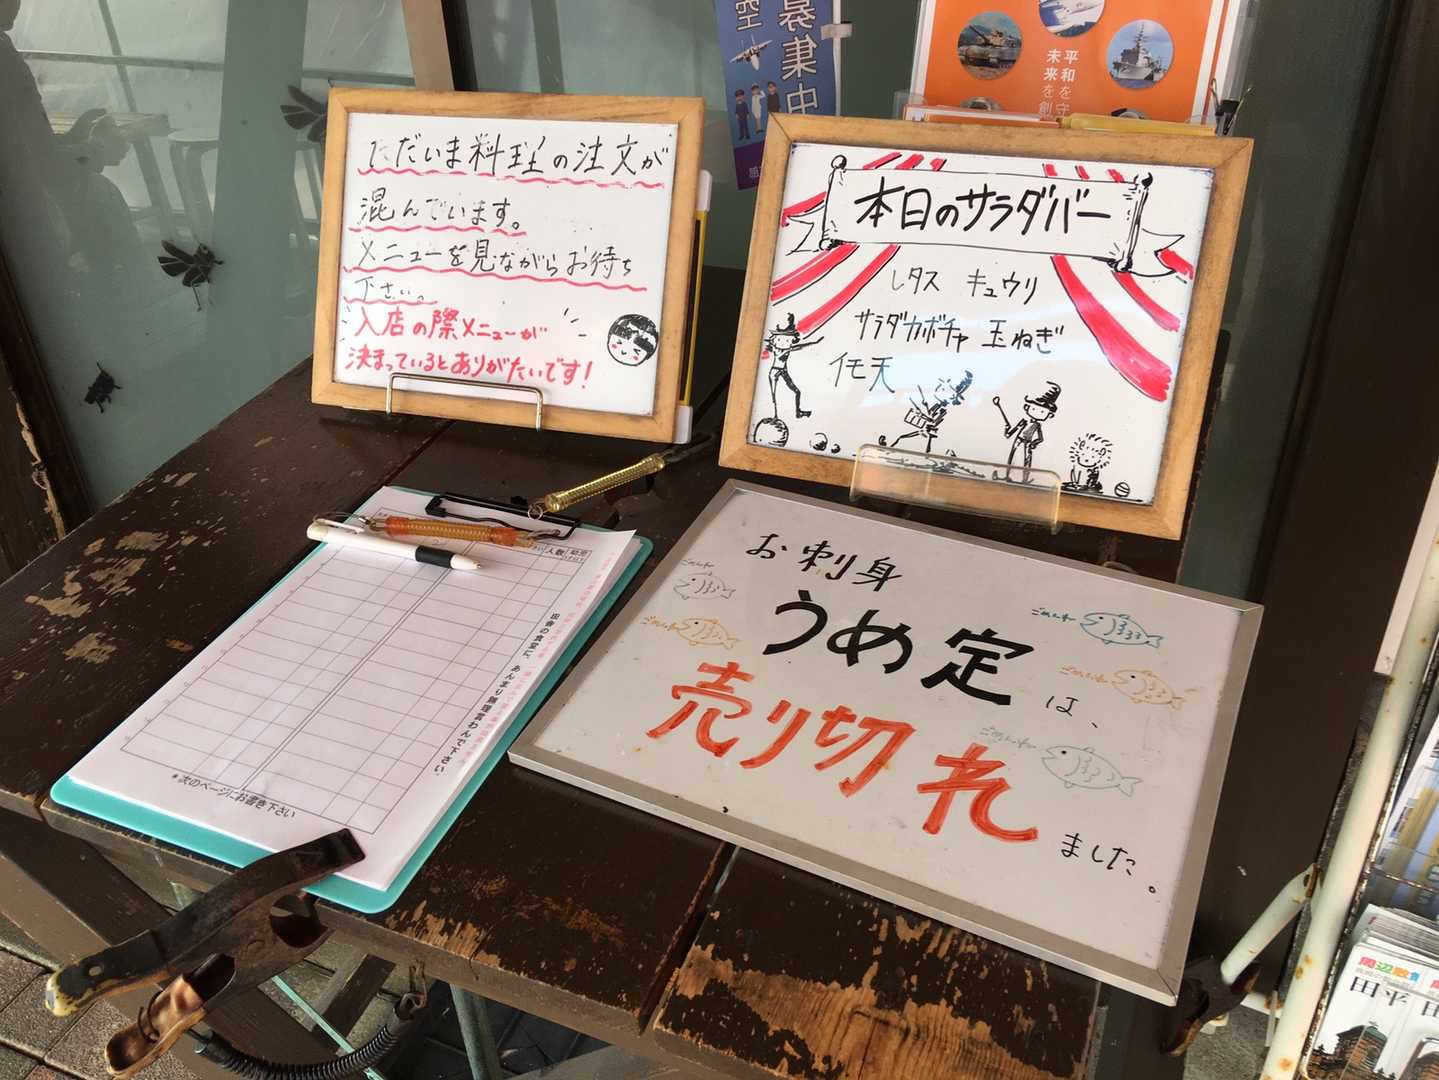 ただいま料理の注文が
混んでいます。
メニューを見ながらお待ち
下さい。
入店の際メニューが
決まっているとありがたいです!
本日のサラダバー
レタス キュウリ
サラダカボチャ 玉ねぎ
イモ天
お刺身
うめ定は、
売り切れました。
ごめんネ
ごめんネ
ごめんネ
ごめんネ
ごめんネ
人数
田舎の食堂に、あんまり無理言わんで下さい。
*次のページにお書き下さい
募集中
空
平和を守
未来を創
周辺散
永田